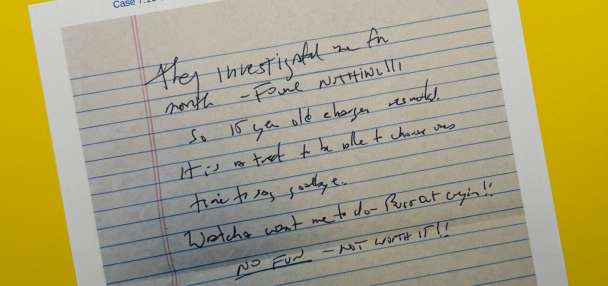 Case 7:
They investigated me for
month - Found NOTHING!!!
So 15 year old charges resulted.
It is a treat to be able to choose ones
time to say goodbye.
Watcha want me to do - Burst out cryin!!
NO FUN - NOT WORTH IT!!